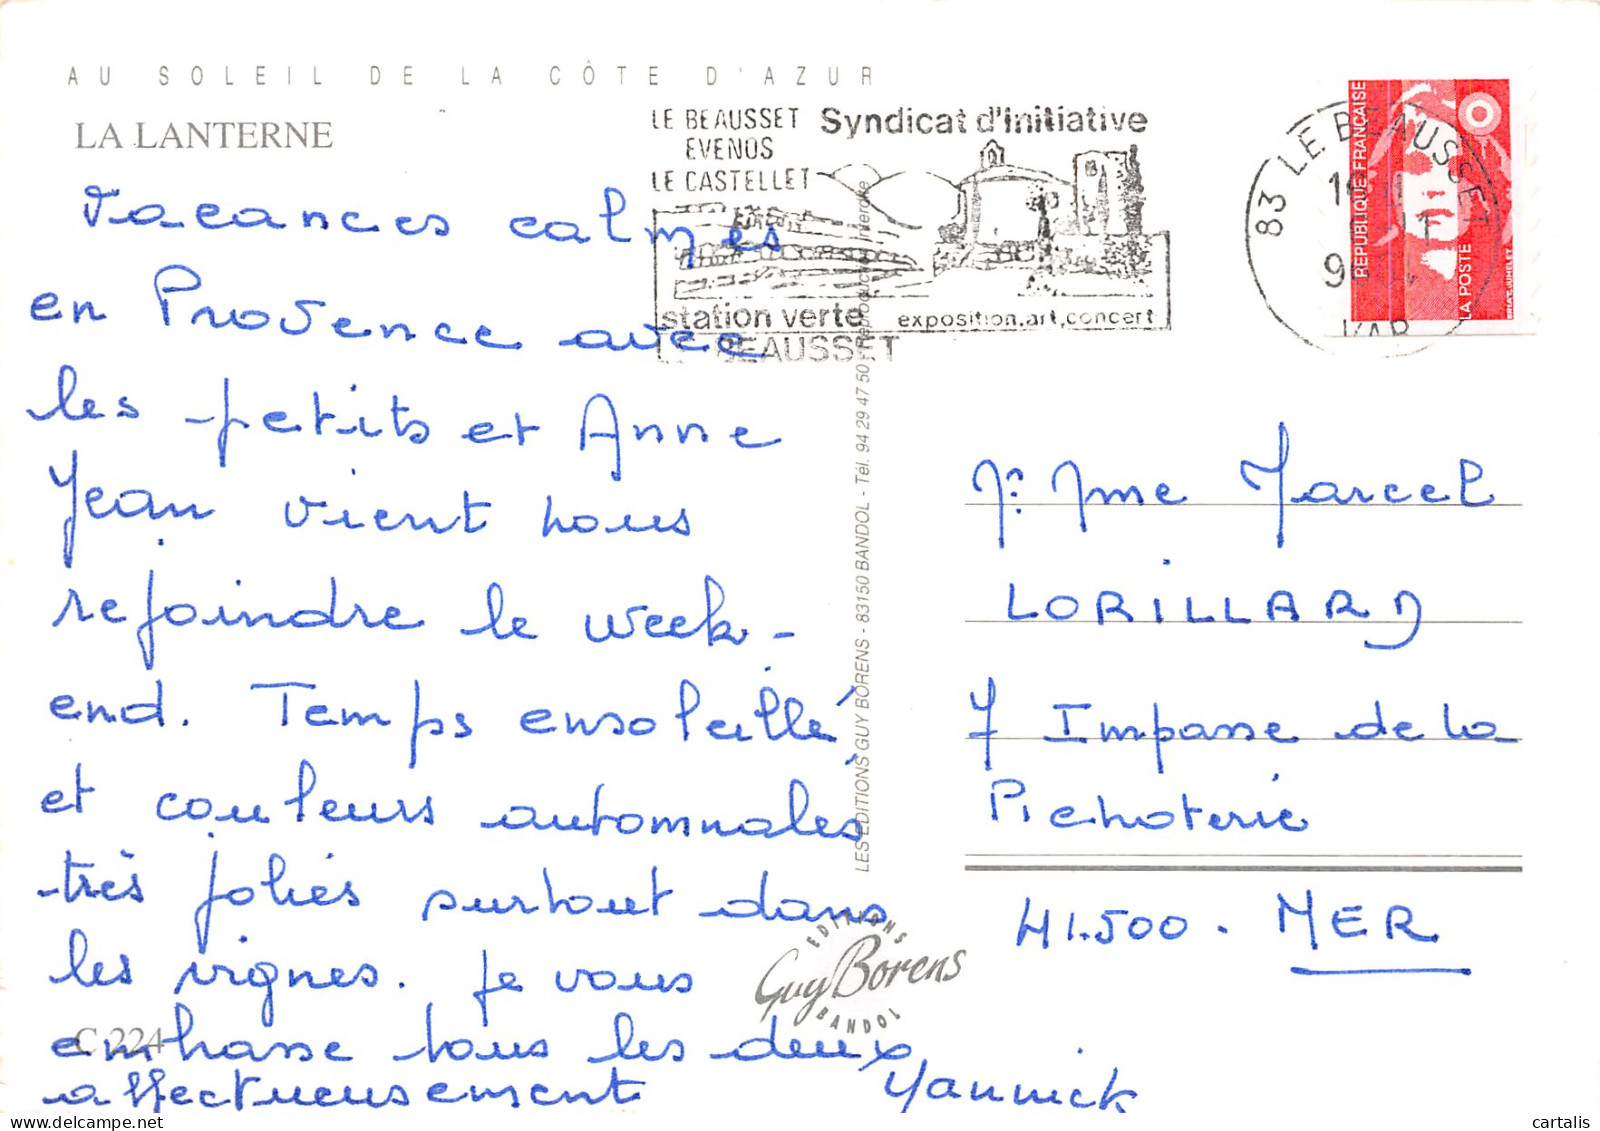 AU SOLEIL DE LA CÔTE D'AZUR
LA LANTERNE
Vacances calmes
en Provence avec
les petits et Anne
Jean vient nous
rejoindre le week-
end. Temps ensoleillé
et couleurs automnales
très jolies surtout dans
les vignes. Je vous
embrasse tous les deux
affectueusement Yannick
C 224
LE BEAUSSET
EVENOS
LE CASTELLET
Syndicat d'initiative
station verte
exposition,art,concert
BEAUSSET
83 LE BEAUSSET
VAR
REPUBLIQUE FRANCAISE
LA POSTE
LES EDITIONS GUY BORENS - 83150 BANDOL - Tél. 94 29 47 50 - Reproduction interdite
EDITIONS
Guy Borens
BANDOL
Mr Mme Marcel
LORILLARD
7 Impasse de la
Pichoterie
41.500. MER
cartalis
www.delcampe.net